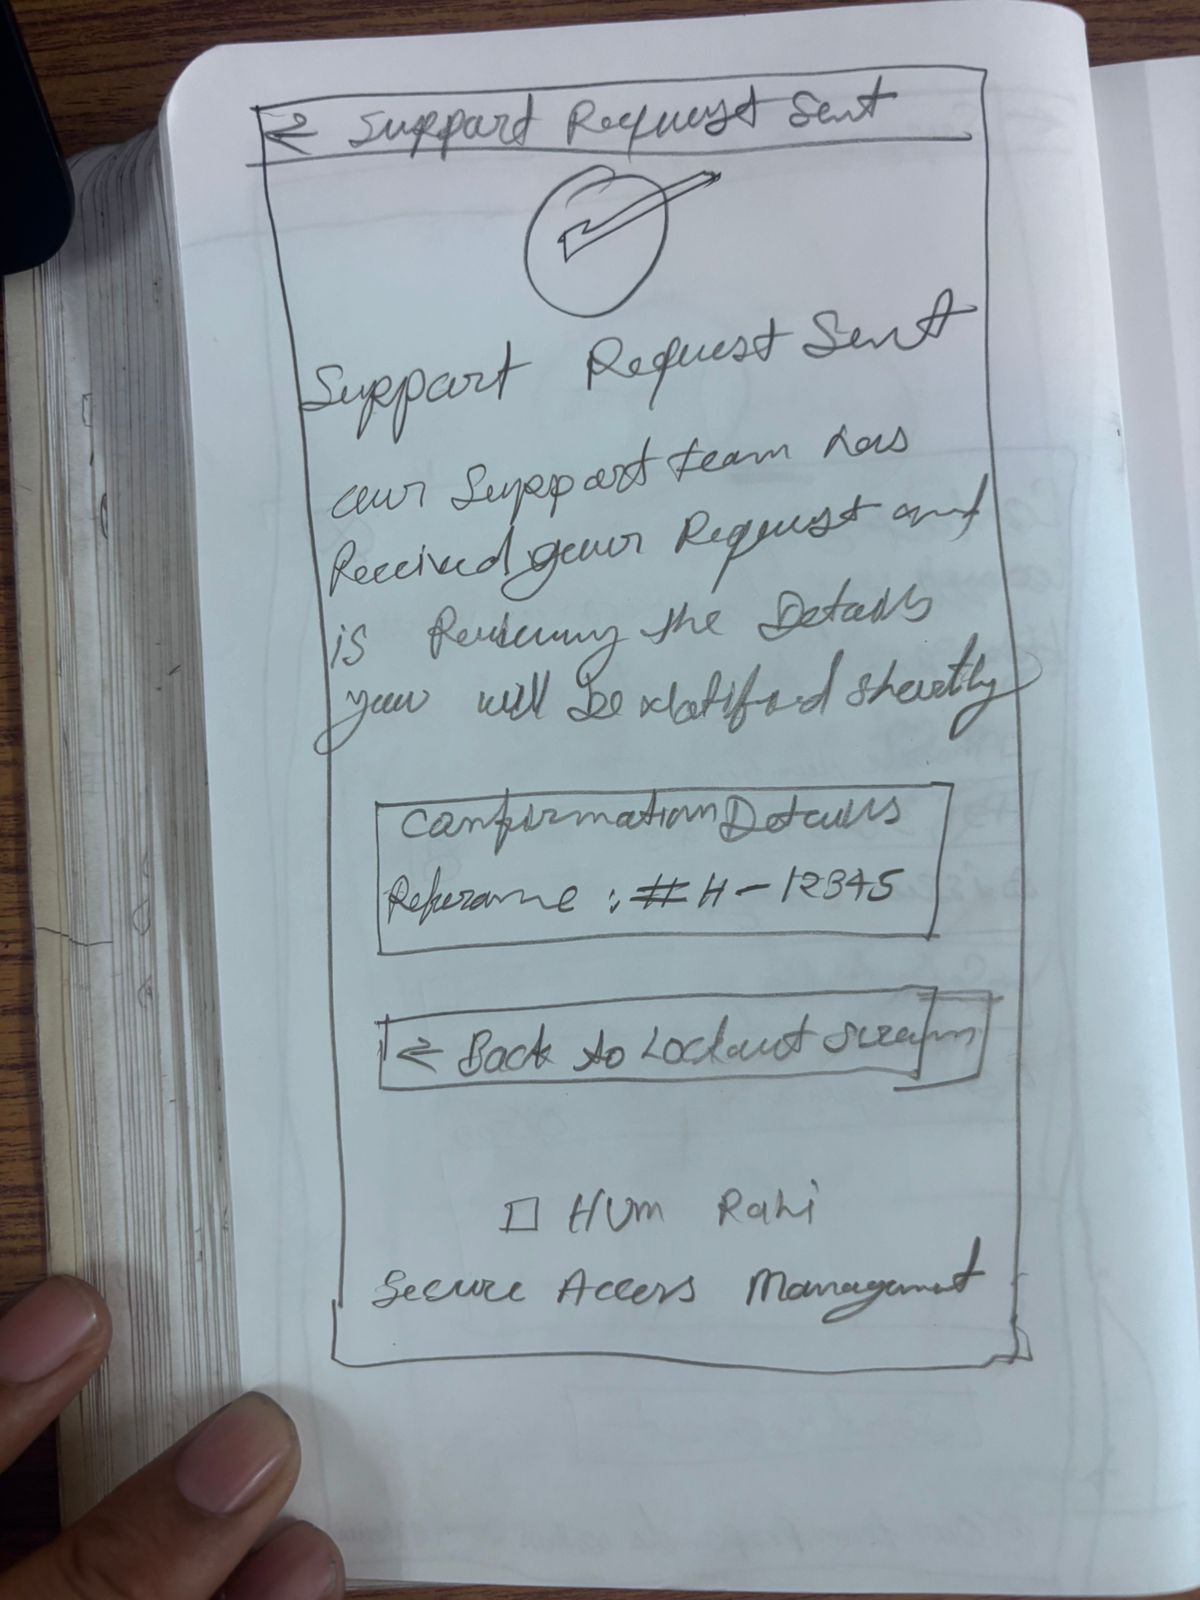 ← Support Request Sent
Support Request Sent
our Support team has
Received your Request and
is Reviewing the Details
you will be Notified shortly
Confirmation Details
Reference : # H - 12345
← Back to Lockout Screen
Hum Rahi
Secure Access Management